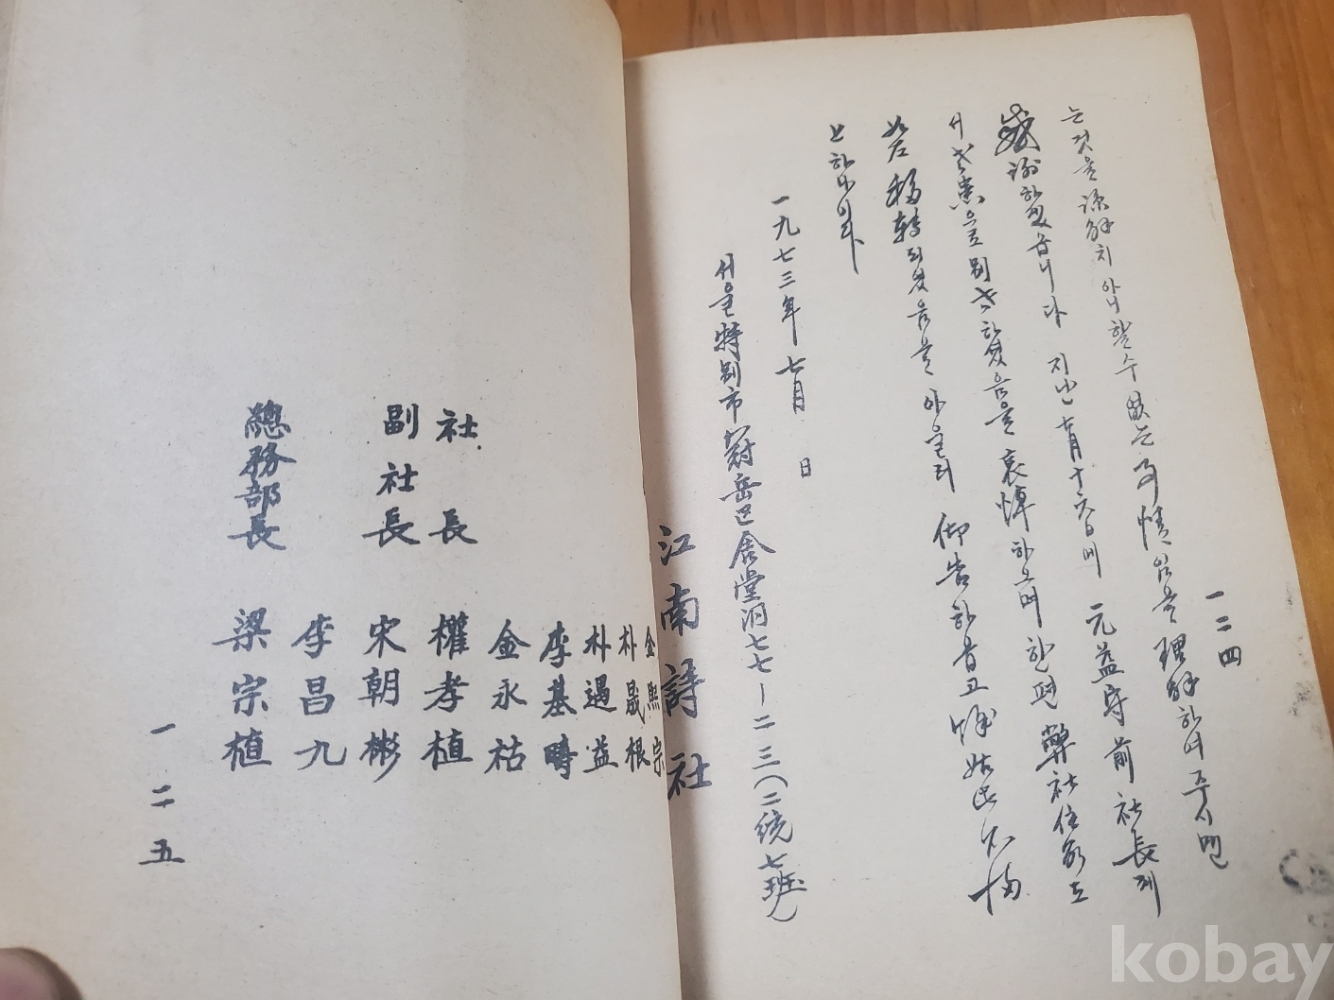 一二四
는것을 諒解치 아니할수 없는 事情임을 理解하여 주시면
感謝하겠읍니다 지난 七月十六日에 元益宰 前 社長게
서 老患으로 別世하셨음을 哀悼하오며 한편 弊社住所도
如左 移轉되었음을 아울러 仰告하옵고 餘姑 不備
上 하나이다
一九七三年 七月 日
서울特別市 冠岳區 舍堂洞 七七-二三(二統七班)
江南詩社
金熙宗
朴晟根
朴遇益
李基疇
金永祜
社長 權孝植
副社長 宋朝彬
李昌九
總務部長 梁宗植
一二五
kobay